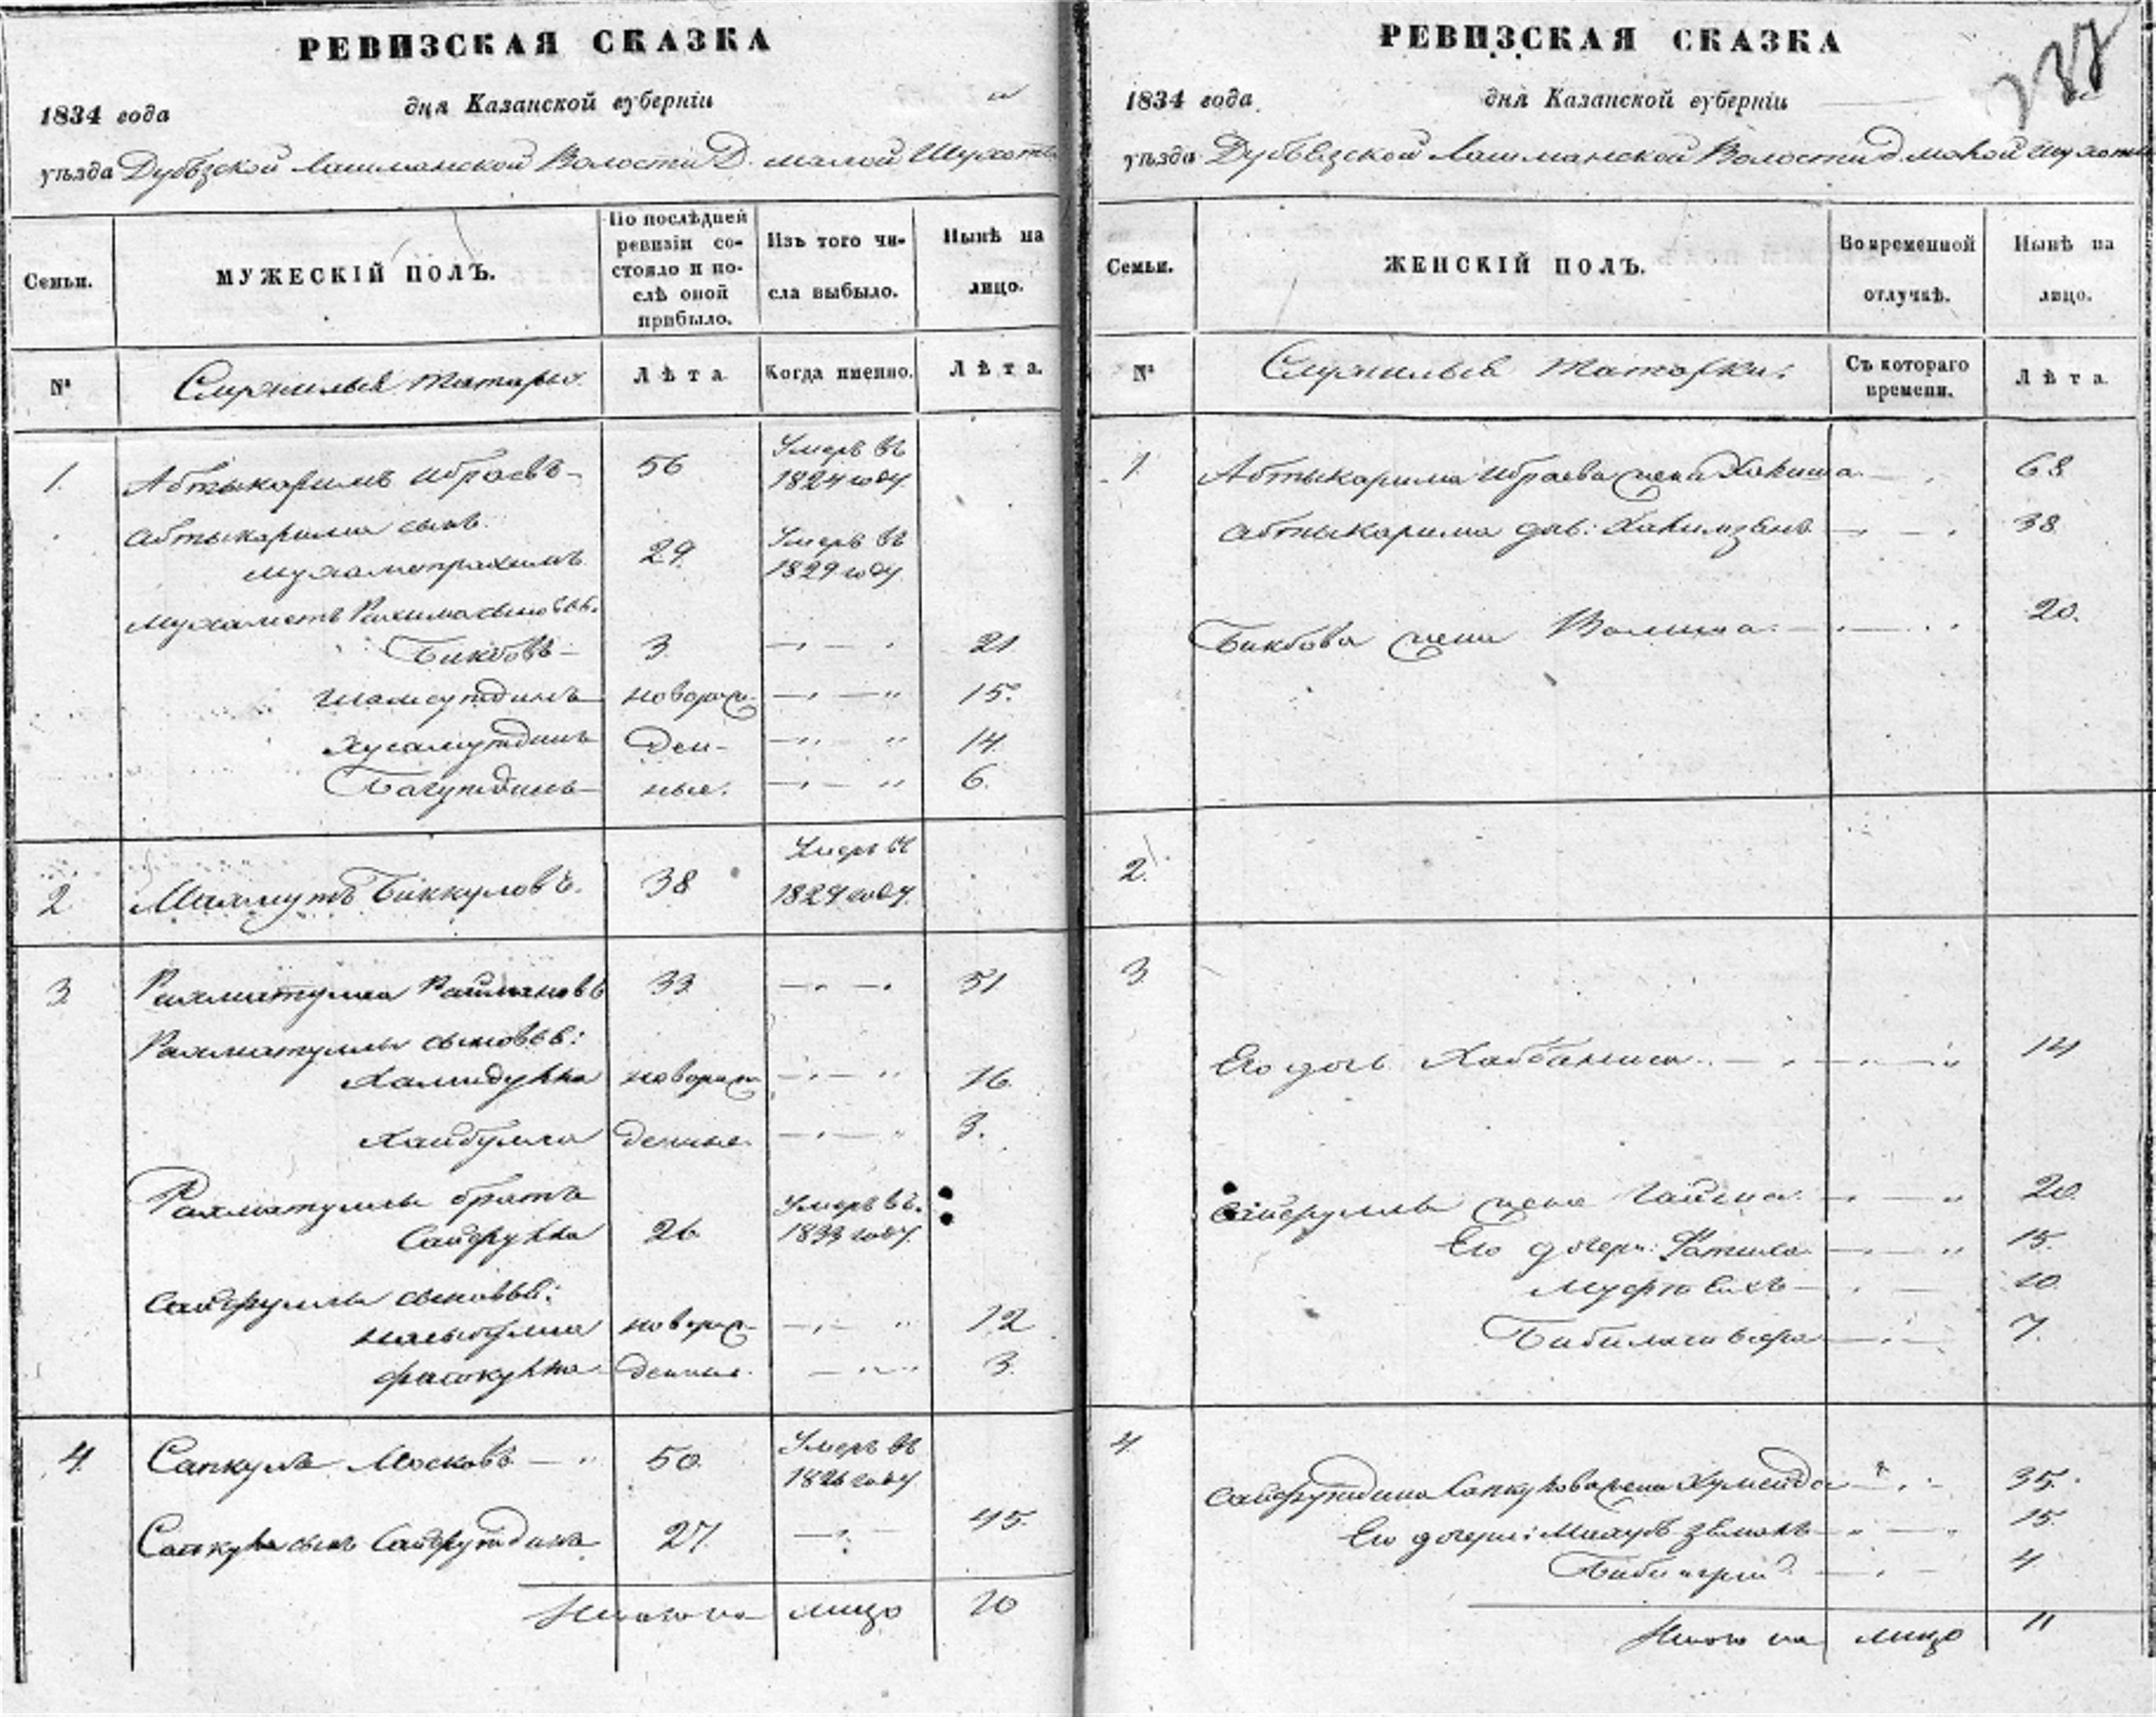 РЕВИЗСКАЯ СКАЗКА
1834 года дня Казанской губерніи
уѣзда Дубъязской Лашманской Волости Д. малой
Семьи.
МУЖЕСКІЙ ПОЛЪ.
По послѣдней
ревизіи со-
стояло и по-
слѣ оной
прибыло.
Изъ того чи-
сла выбыло.
Нынѣ на
лицо.
№
Служилыя татары
Лѣта
Когда именно.
Лѣта.
1. Абтыкаримъ Ибраевъ 56 Умеръ въ
1824 году
Абтыкарима сынъ
Мухаметрахимъ 29 Умеръ въ
1829 году
Мухаметъ Рахима сыновья.
Бикбовъ 3 21
Шамсутдинъ новорож- 15.
Хусамутдинъ ден- 14.
Багутдинъ ные. 6.
2 Махмутъ Биккуловъ. 38 Умеръ въ
1829 году
3 Рахматулла 33 51
Рахматуллы сыновья:
Хамидулла новорож 16
Хайбулла денные 3.
Рахматуллы братъ
Сайфулла 26 Умеръ въ
1833 году
Сайфуллы сыновья:
новорож- 12
денные. 3.
4. Сапкулъ Московъ 50 Умеръ въ
1826 году
Сапкула сынъ Сайфутдинъ 27 45.
Итого на лицо 10
РЕВИЗСКАЯ СКАЗКА
237
1834 года дня Казанской губерніи
уѣзда Дубъязской Лашманской Волости д. малой
Семьи.
ЖЕНСКІЙ ПОЛЪ.
Во временной
отлучкѣ.
Нынѣ на
лицо.
№
Служилыя Татарки:
Съ котораго
времени.
Лѣта.
1. Абтыкарима Ибраева жена 68
Абтыкарима доч: 38
Бикбова жена 20.
2.
3
Его дочь 14
Сайфуллы жена 20
Его дочери: 15.
10.
7.
4.
Сайфутдина Сапкулова жена 35.
Его дочери: 15
4
Итого на лицо 11